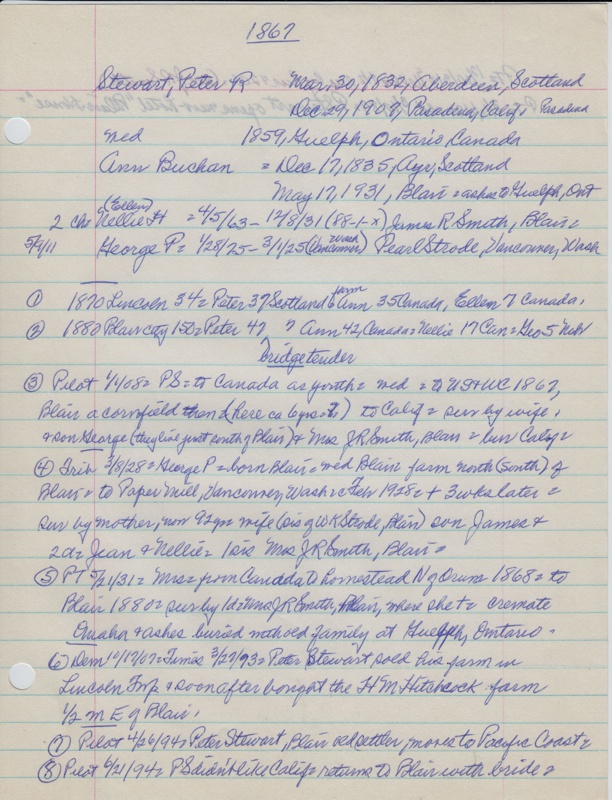 1867
Stewart, Peter R Mar, 30, 1832, Aberdeen, Scotland
Dec 29, 1907, Pasadena, Calif, Pasadena
med 1859, Guelph, Ontario Canada
Ann Buchan = Dec 17, 1835, Ayr, Scotland
May 17, 1931, Blair = ashes to Guelph, Ont
(Ellen)
2 chn Nellie H = 4/5/63 - 12/8/31 (88-1-x) James R Smith, Blair =
5/4/11 George P = 1/28/75 - 3/1/28 (Vancouver Wash) Pearl Strode, Vancouver, Wash
① 1870 Lincoln 34 = Peter 37 Scotland farm Ann 35 Canada, Ellen 7 Canada,
② 1880 Blair city 150 = Peter 47 Ann 42, Canada = Nellie 17 Can = Geo 5 Nebr
Bridgetender
③ Pilot 1/1/08 = PS = to Canada as youth = med = to US & WC 1867,
Blair a cornfield then (here ca 6 yrs = ) to Calif = sur by wife,
& son George (they live just south of Blair) & Mrs J R Smith, Blair = bur Calif =
④ Trib 3/8/28 = George P = born Blair = med Blair farm north (south) of
Blair = to Paper Mill, Vancouver, Wash = Feb 1928 = + 3 wks later =
sur by mother, now 92 yr = wife (sis of W K Strode, Blair) son James &
2 d = Jean & Nellie = 1 sis Mrs J R Smith, Blair =
⑤ PT 5/21/31 = Mrs = from Canada to homestead N of Orum = 1868 = to
Blair 1880 = sur by 1 d = Mrs J R Smith, Blair, where she + = cremate
Omaha & ashes buried with old family at Guelph, Ontario =
⑥ Dem 10/17/07 = Times 3/27/93 = Peter Stewart sold his farm in
Lincoln Twp & soon after bought the H M Hitchcock farm
1/2 m E of Blair,
⑦ Pilot 4/26/94 = Peter Stewart, Blair old settler, moves to Pacific Coast =
⑧ Pilot 6/21/94 = PS didn't like Calif = returns to Blair with bride =